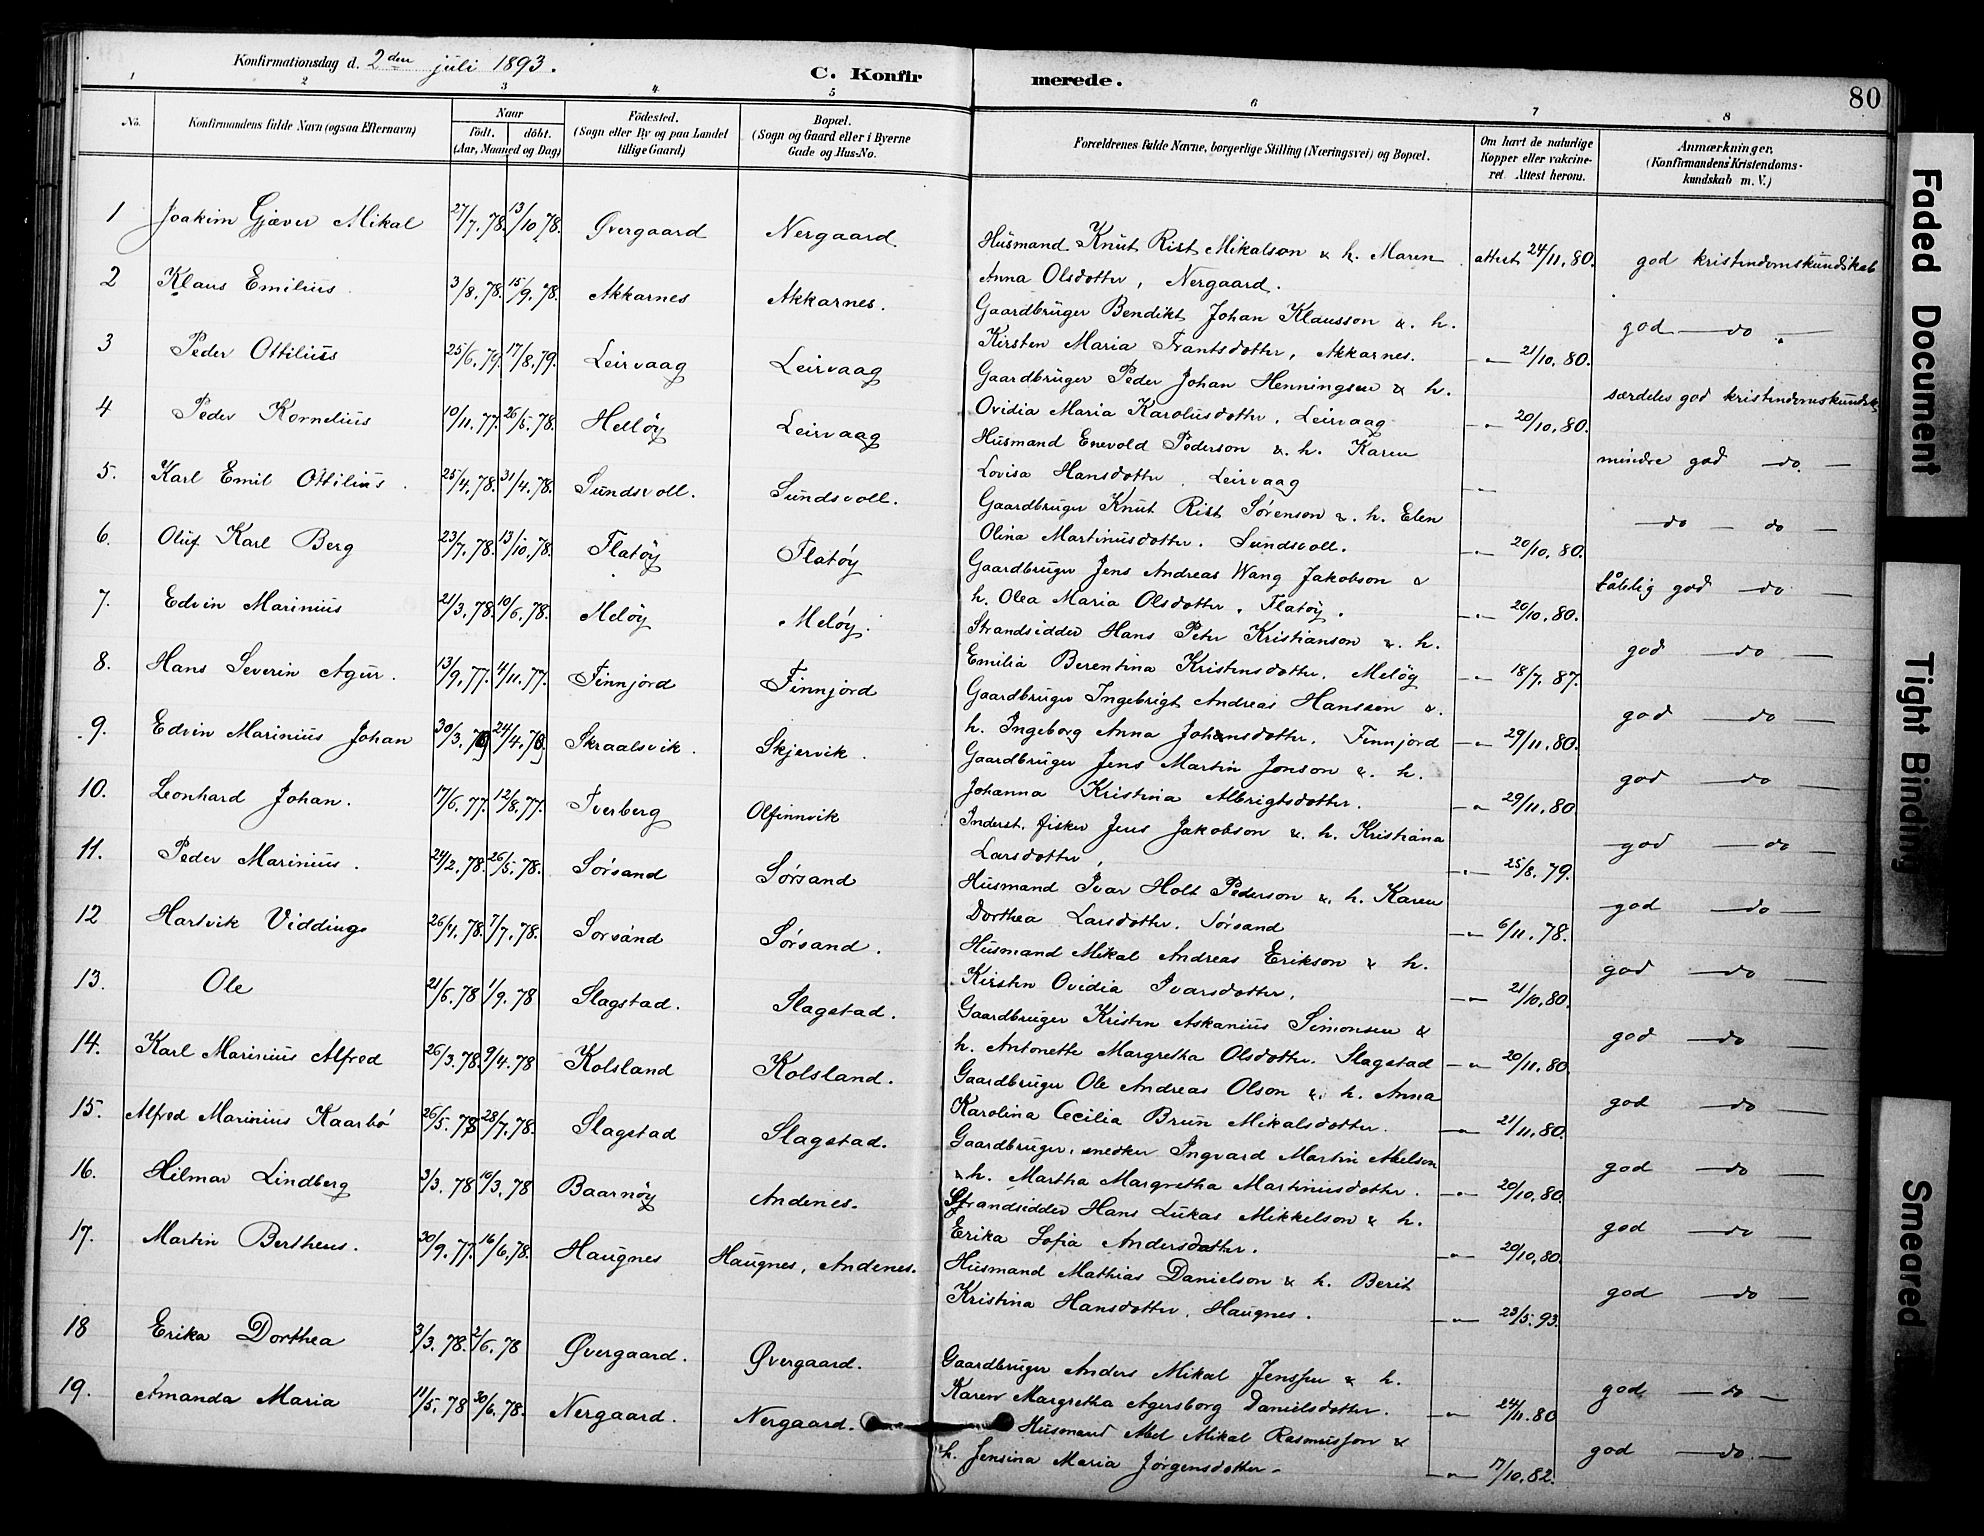 Konfirmationsdag d. 2den juli 1893.
C. Konfirmerede.
80
1 2 3 4 5 6 7 8
No.
Konfirmandens fulde Navn (ogsaa Efternavn)
Naar
født. døbt.
(Aar, Maaned og Dag)
Fødested.
(Sogn eller By og paa Landet
tillige Gaard)
Bopæl.
(Sogn og Gaard eller i Byerne
Gade og Hus-No.
Forældrenes fulde Navne, borgerlige Stilling (Næringsvei) og Bopæl.
Om havt de naturlige
Kopper eller vakcine-
ret. Attest herom.
Anmærkninger,
(Konfirmandens Kristendoms-
kundskab m. V.)
1 Joakim Gjæver Mikal 27/7.78. 13/10.78. Øvergaard Nergaard.
Husmand Knut Rist Mikalson & h. Maren
Anna Olsdotter, Nergaard.
attest 24/11.80. god kristendomskundskab
2 Klaus Emilius 3/8.78. 15/9.78. Akkarnes Akkarnes.
Gaardbruger Bendikt Johan Klausson &. h.
Kirsten Maria Frantsdotter, Akkarnes.
—"— 21/10.80. god —do—
3 Peder Ottilius 25/6.79. 17/8.79. Leirvaag Leirvaag
Gaardbruger Peder Johan Henningsen & h.
Ovidia Maria Karolusdotter, Leirvaag
—"— 20/10.80. særdeles god kristendomskundsk.
4 Peder Kornelius 10/11.77. 26/5.78. Helløy Leirvaag
Husmand Enevold Pederson &. h. Karen
Lovisa Hansdotter. Leirvaag
—"— mindre god —do.—
5. Karl Emil Ottilius. 25/4.78. 31/4.78. Sundsvoll. Sundsvoll.
Gaardbruger Knut Rist Sørenson &. h. Elen
Olina Martinusdotter. Sundsvoll.
—"— 20/10.80. —do— do—
6. Oluf Karl Berg 23/7.78. 13/10.78. Flatøy Flatøy
Gaardbruger Jens Andreas Wang Jakobson &
h. Olea Maria Olsdotter. Flatøy.
—"— 20/10.80. tålelig god —do—
7. Edvin Marinius 21/3.78. 10/6.78. Meløy Meløy.
Strandsidder Hans Peter Kristianson &. h.
Emilia Berentina Kristensdotter. Meløy
—"— 18/7.87. god —do—
8. Hans Severin Agur. 13/9.77. 4/11.77. Finnjord Finnjord
Gaardbruger Ingebrigt Andreas Hansson &.
h. Ingeborg Anna Johansdotter. Finnjord
—"— 29/11.80. god —do—
9. Edvin Marinius Johan 30/3. 24/4. Skraalsvik. Skjervik.
Gaardbruger Jens Martin Jonson &. h.
Johanna Kristina Albrigtsdotter.
—"— 29/11.80. god —do—
10. Leonhard Johan. 17/6.77. 12/8.77. Tverberg Olfinnvik
Inderst. fisker Jens Jakobson &. h. Kristiana
Larsdotter,
—"— 25/8.79. god —do—
11. Peder Marinius. 24/2.78. 26/5.78. Sørsand Sørsand
Husmand Ivar Holt Pederson &. h. Karen
Dorthea Larsdotter. Sørsand
—"— 6/11.78. god —do—
12 Hartvik Viddings 26/4.78. 7/7.78. Sørsand Sørsand.
Husmand Mikal Andreas Erikson & h.
Kirsten Ovidia Ivarsdotter.
—"— 21/10.80. god —do—
13. Ole 21/6.78 1/9.78 Slagstad. Slagstad.
Gaardbruger Kristen Askanius Simonsen &
h. Antonette Margretha Olsdotter. Slagstad
—"— 20/11.80. god —do—
14. Karl Marinius Alfred 26/3.78. 9/4.78 Kolsland Kolsland.
Gaardbruger Ole Andreas Olson & h. Anna
Karolina Cecilia Brun Mikalsdotter.
—"— 21/11.80. god —do—
15. Alfred Marinius Kaarbø 26/5.78 28/7.78. Slagstad Slagstad.
Gaardbruger, snedker Ingvard Martin Abelson
&h. Martha Margretha Martinusdotter.
—"— 20/10.80. god —do—
16. Hilmar Lindberg 3/3.78 10/3.78 Baarnøy Andenes.
Strandsidder Hans Lukas Mikkelson & h.
Erika Sofia Andersdotter.
—"— 20/10.80. god —do—
17. Martin Bertheus. 30/9.77. 16/6.78. Haugnes Haugnes, Andenes.
Husmand Mathias Danielson & h. Berit
Kristina Hansdotter, Haugnes.
—"— 23/5.93. god —do—
18 Erika Dorthea 3/3.78. 2/6.78 Øvergaard. Øvergaard.
Gaardbruger Anders Mikal Jenssen & h.
Karen Margretha Agersborg Danielsdotter.
—"— 24/11.80 god. —do—
19. Amanda Maria 11/5.78 30/6.78. Nergaard. Nergaard.
Husmand Abel Mikal Rasmusson &
h. Jensina Maria Jørgensdotter.
—"— 17/10.82. god —do.—
Faded Document
Tight Binding
Smeared